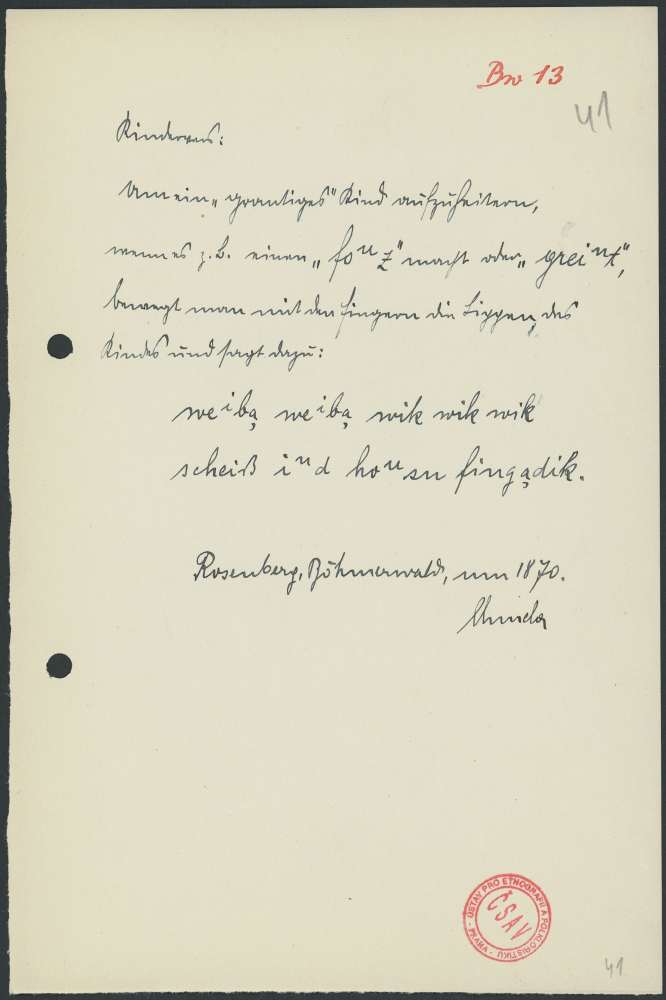 Bw 13
41
Kindervers:
Um ein „grantiges“ Kind aufzuheitern,
wenn es z.B. einen „foᵘz“ macht oder „greiⁿt“,
bewegt man mit den Fingern die Lippen des
Kindes und sagt dazu:
weⁱbą weⁱbą wik wik wik
scheiß iⁿd hoᵘsn fingądik.
Rosenberg, Böhmerwald, um 1870.
ÚSTAV PRO ETNOGRAFII A FOLKLORISTIKU - PRAHA -
ČSAV
41